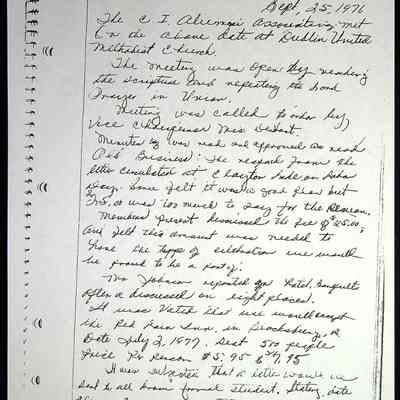 Sept. 25, 1976
The C I. Alumni Association met
on the above date at Dublin United
Methodist Church.
The meeting was open by reading
the scripture and repeating the Lord
Prayer in Union.
Meeting was called to order by,
Vice Chairperson Miss
Minutes was read and approved as read
Old Business: The respond from the
letter circulated at Clayton Lake on Labor
Day. Some felt it was a good plan but
was too much to pay for the Reunion.
Members present discussed the fee of
and felt this amount was needed to
have the type of celebration we would
be proud to be a part of.
Mr Johnson reported on Hotel, banquets
after a discussed on eight places.
It was Voted that we would accept
the Red Inn, in
Date July 2, 1977. Seat 500 people
Price Per Person $5.95 & $7.95
It was voted that a letter would be
sent to all known formal student. Stating, date